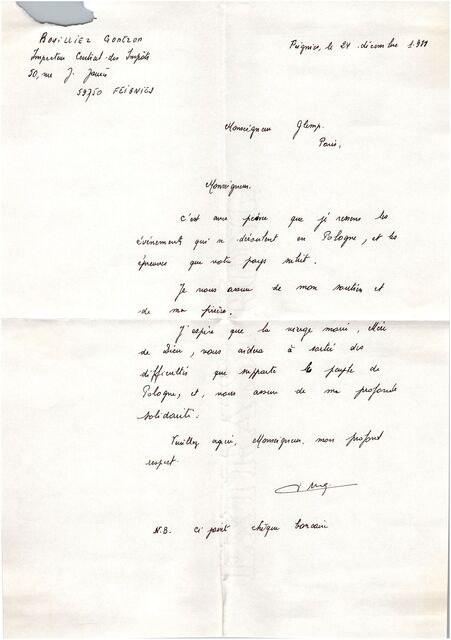 BASILLIEZ GONTRAN
Inspecteur Central des Impôts
50, rue J. Jaurès
59750 FEIGNIES
Feignies, le 24 décembre 1981
Monseigneur Glemp.
Paris,
Monseigneur.
C'est avec peine que je ressens les
événements qui se déroulent en Pologne, et les
épreuves que votre pays subit.
Je vous assure de mon soutien et
de ma prière.
J'espère que la vierge marie, Mère
de Dieu, vous aidera à sortir des
difficultés que supporte le peuple de
Pologne, et, vous assure de ma profonde
solidarité.
Veuillez agréer, Monseigneur, mon profond
respect.
N.B. ci joint chèque bancaire